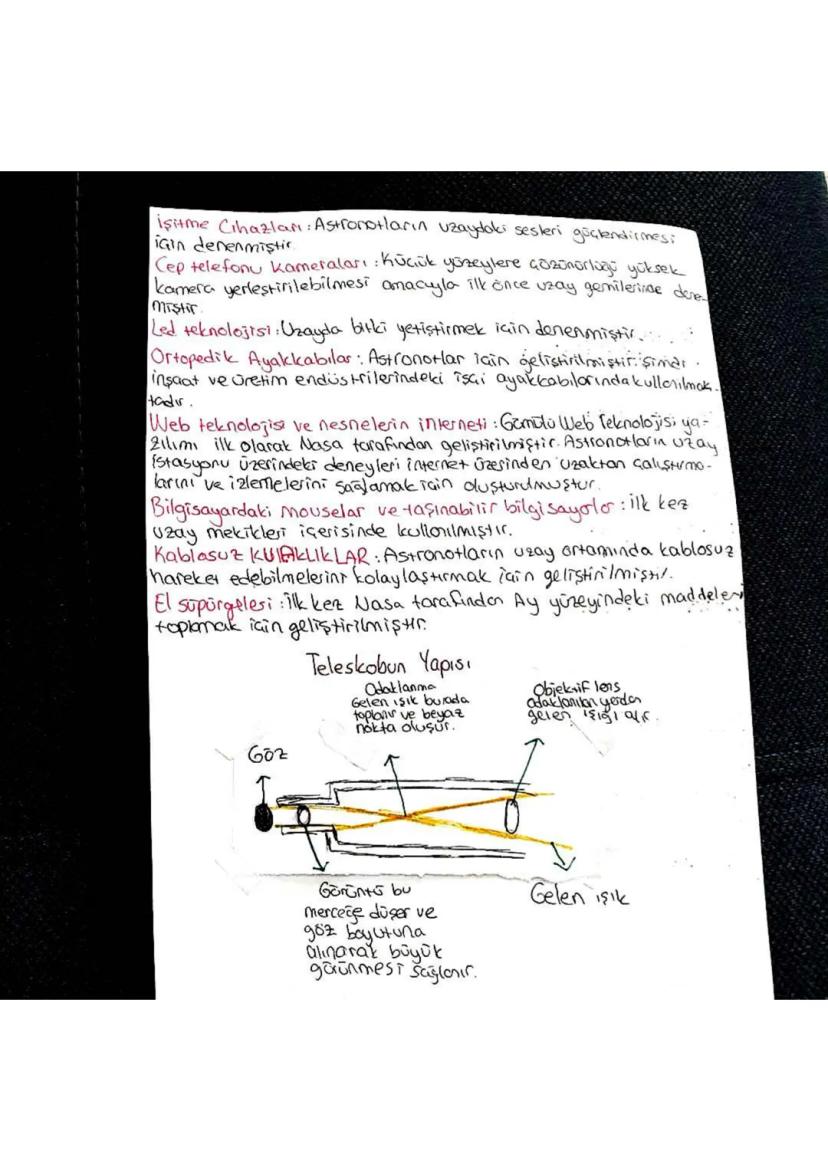 İşitme Cihazları: Astronotların uzaydaki sesleri güçlendirmesi
için denenmiştir
Cep telefonu kameraları: Küçük yüzeylere çözünürlüğü yüksek
kamera yerleştirilebilmesi amacıyla ilk önce uzay gemilerinde dene-
miştir
Led teknolojisi: Uzayda bitki yetiştirmek için denenmiştir.
Ortopedik Ayakkabılar: Astronotlar için geliştirilmiştir. Şimdi
inşaat ve üretim endüstrilerindeki işçi ayakkabılarında kullanılmak-
tadır.
Web teknolojisi ve nesnelerin interneti: Gömülü Web Teknolojisi ya-
zılımı ilk olarak Nasa tarafından geliştirilmiştir. Astronotların uzay
istasyonu üzerindeki deneyleri internet üzerinden uzaktan çalıştırma-
larını ve izlemelerini sağlamak için oluşturulmuştur.
Bilgisayardaki mouselar ve taşınabilir bilgisayarlar: ilk kez
uzay mekikleri içerisinde kullanılmıştır.
Kablosuz KULAKLIKLAR: Astronotların uzay ortamında kablosuz
hareket edebilmelerini kolaylaştırmak için geliştirilmişti.
El süpürgelesi: ilk kez Nasa tarafından Ay yüzeyindeki maddeleri
toplamak için geliştirilmiştir.
Teleskobun Yapısı
Odaklanma
Gelen ışık burada
toplanır ve beyaz
nokta oluşur.
Objektif lens
odaklanılan yerden
gelen ışığı alır.
Göz
Görüntü bu
merceğe düşer ve
göz boyutuna
alınarak büyük
görünmesi sağlanır.
Gelen ışık